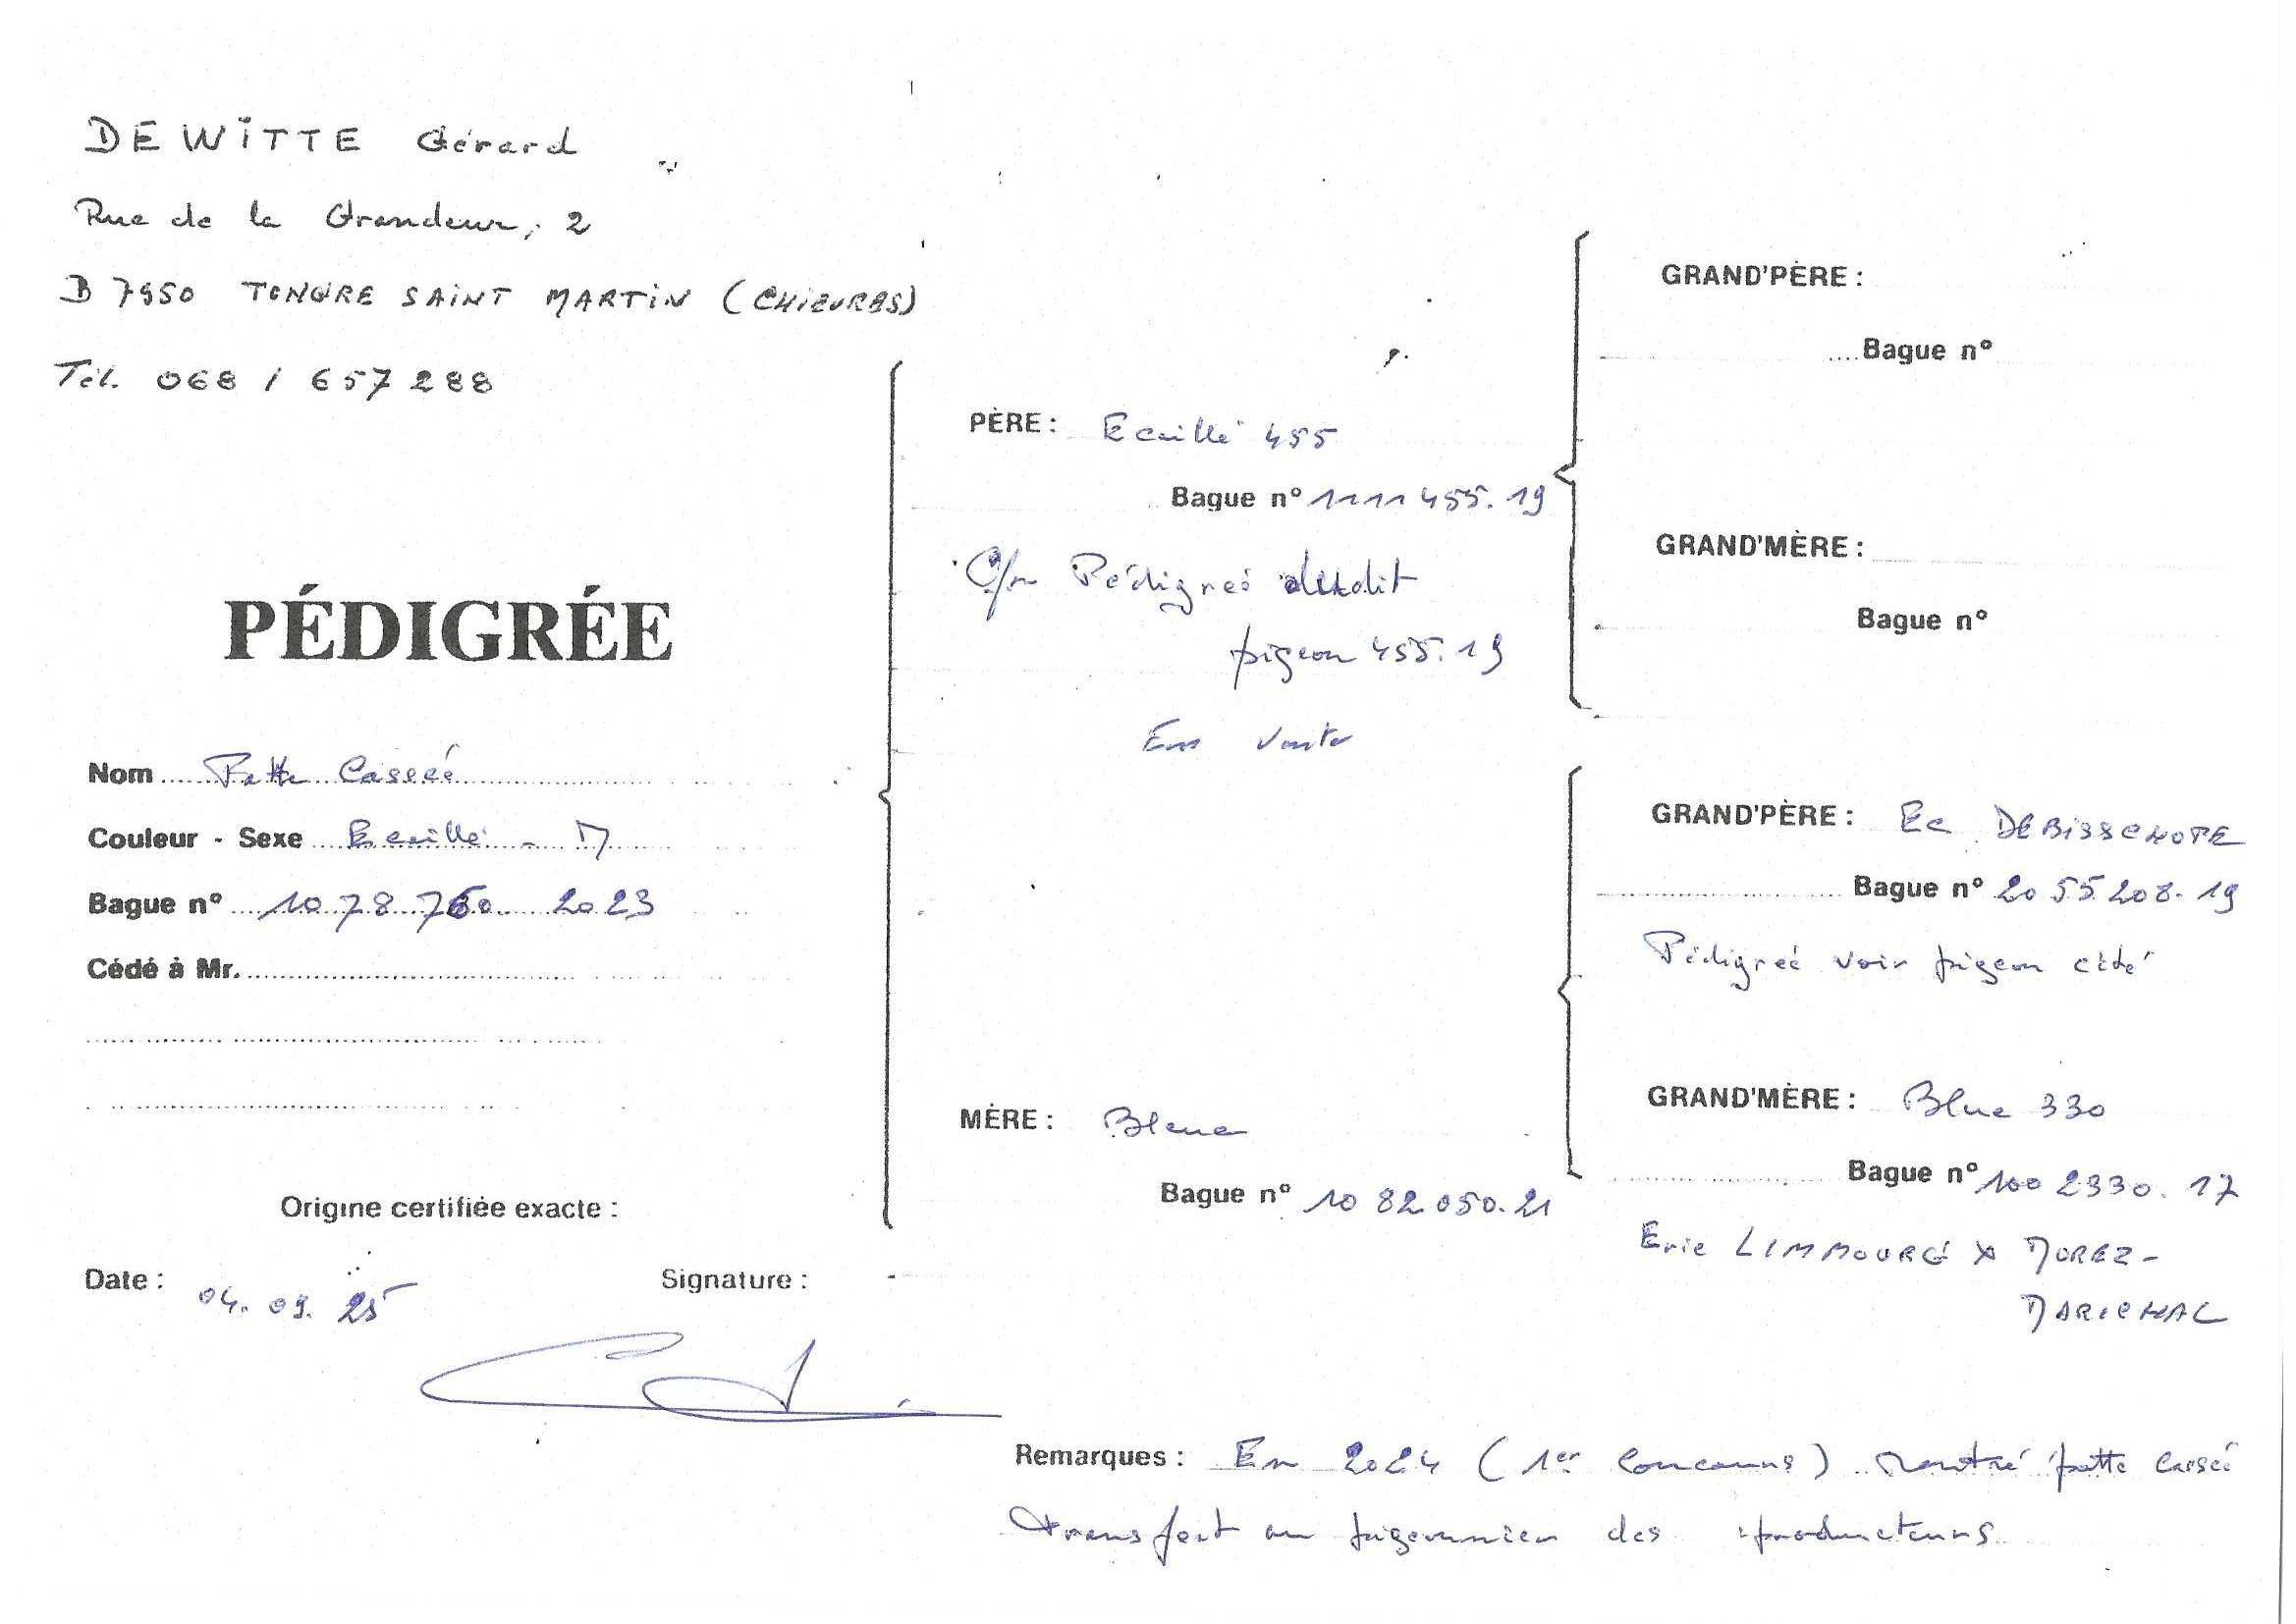 DEWITTE Gérard
Rue de la Grandeur, 2
B 7950 TONGRE SAINT MARTIN (CHIEVRES)
Tél. 068 / 657 288
PÉDIGRÉE
Nom Patte Cassée
Couleur - Sexe Ecaillé - M
Bague n° 1078760 2023
Cédé à Mr.
Origine certifiée exacte :
Date : 04.09.25
Signature :
PÈRE : Ecaillé 455
Bague n° 1111455.19
Pédigrée dudit
pigeon 455.19
En vente
MÈRE : Bleue
Bague n° 1082050.21
GRAND'PÈRE :
Bague n°
GRAND'MÈRE :
Bague n°
GRAND'PÈRE : Ec DEBISSCHOPE
Bague n° 2055208.19
Pédigrée voir pigeon cité
GRAND'MÈRE : Blue 330
Bague n° 1002330.17
Eric LIMMOURG x MOREZ-
MARICHAL
Remarques : En 2024 (1er concours) Rentré patte cassée
transfert au pigeonnier des producteurs